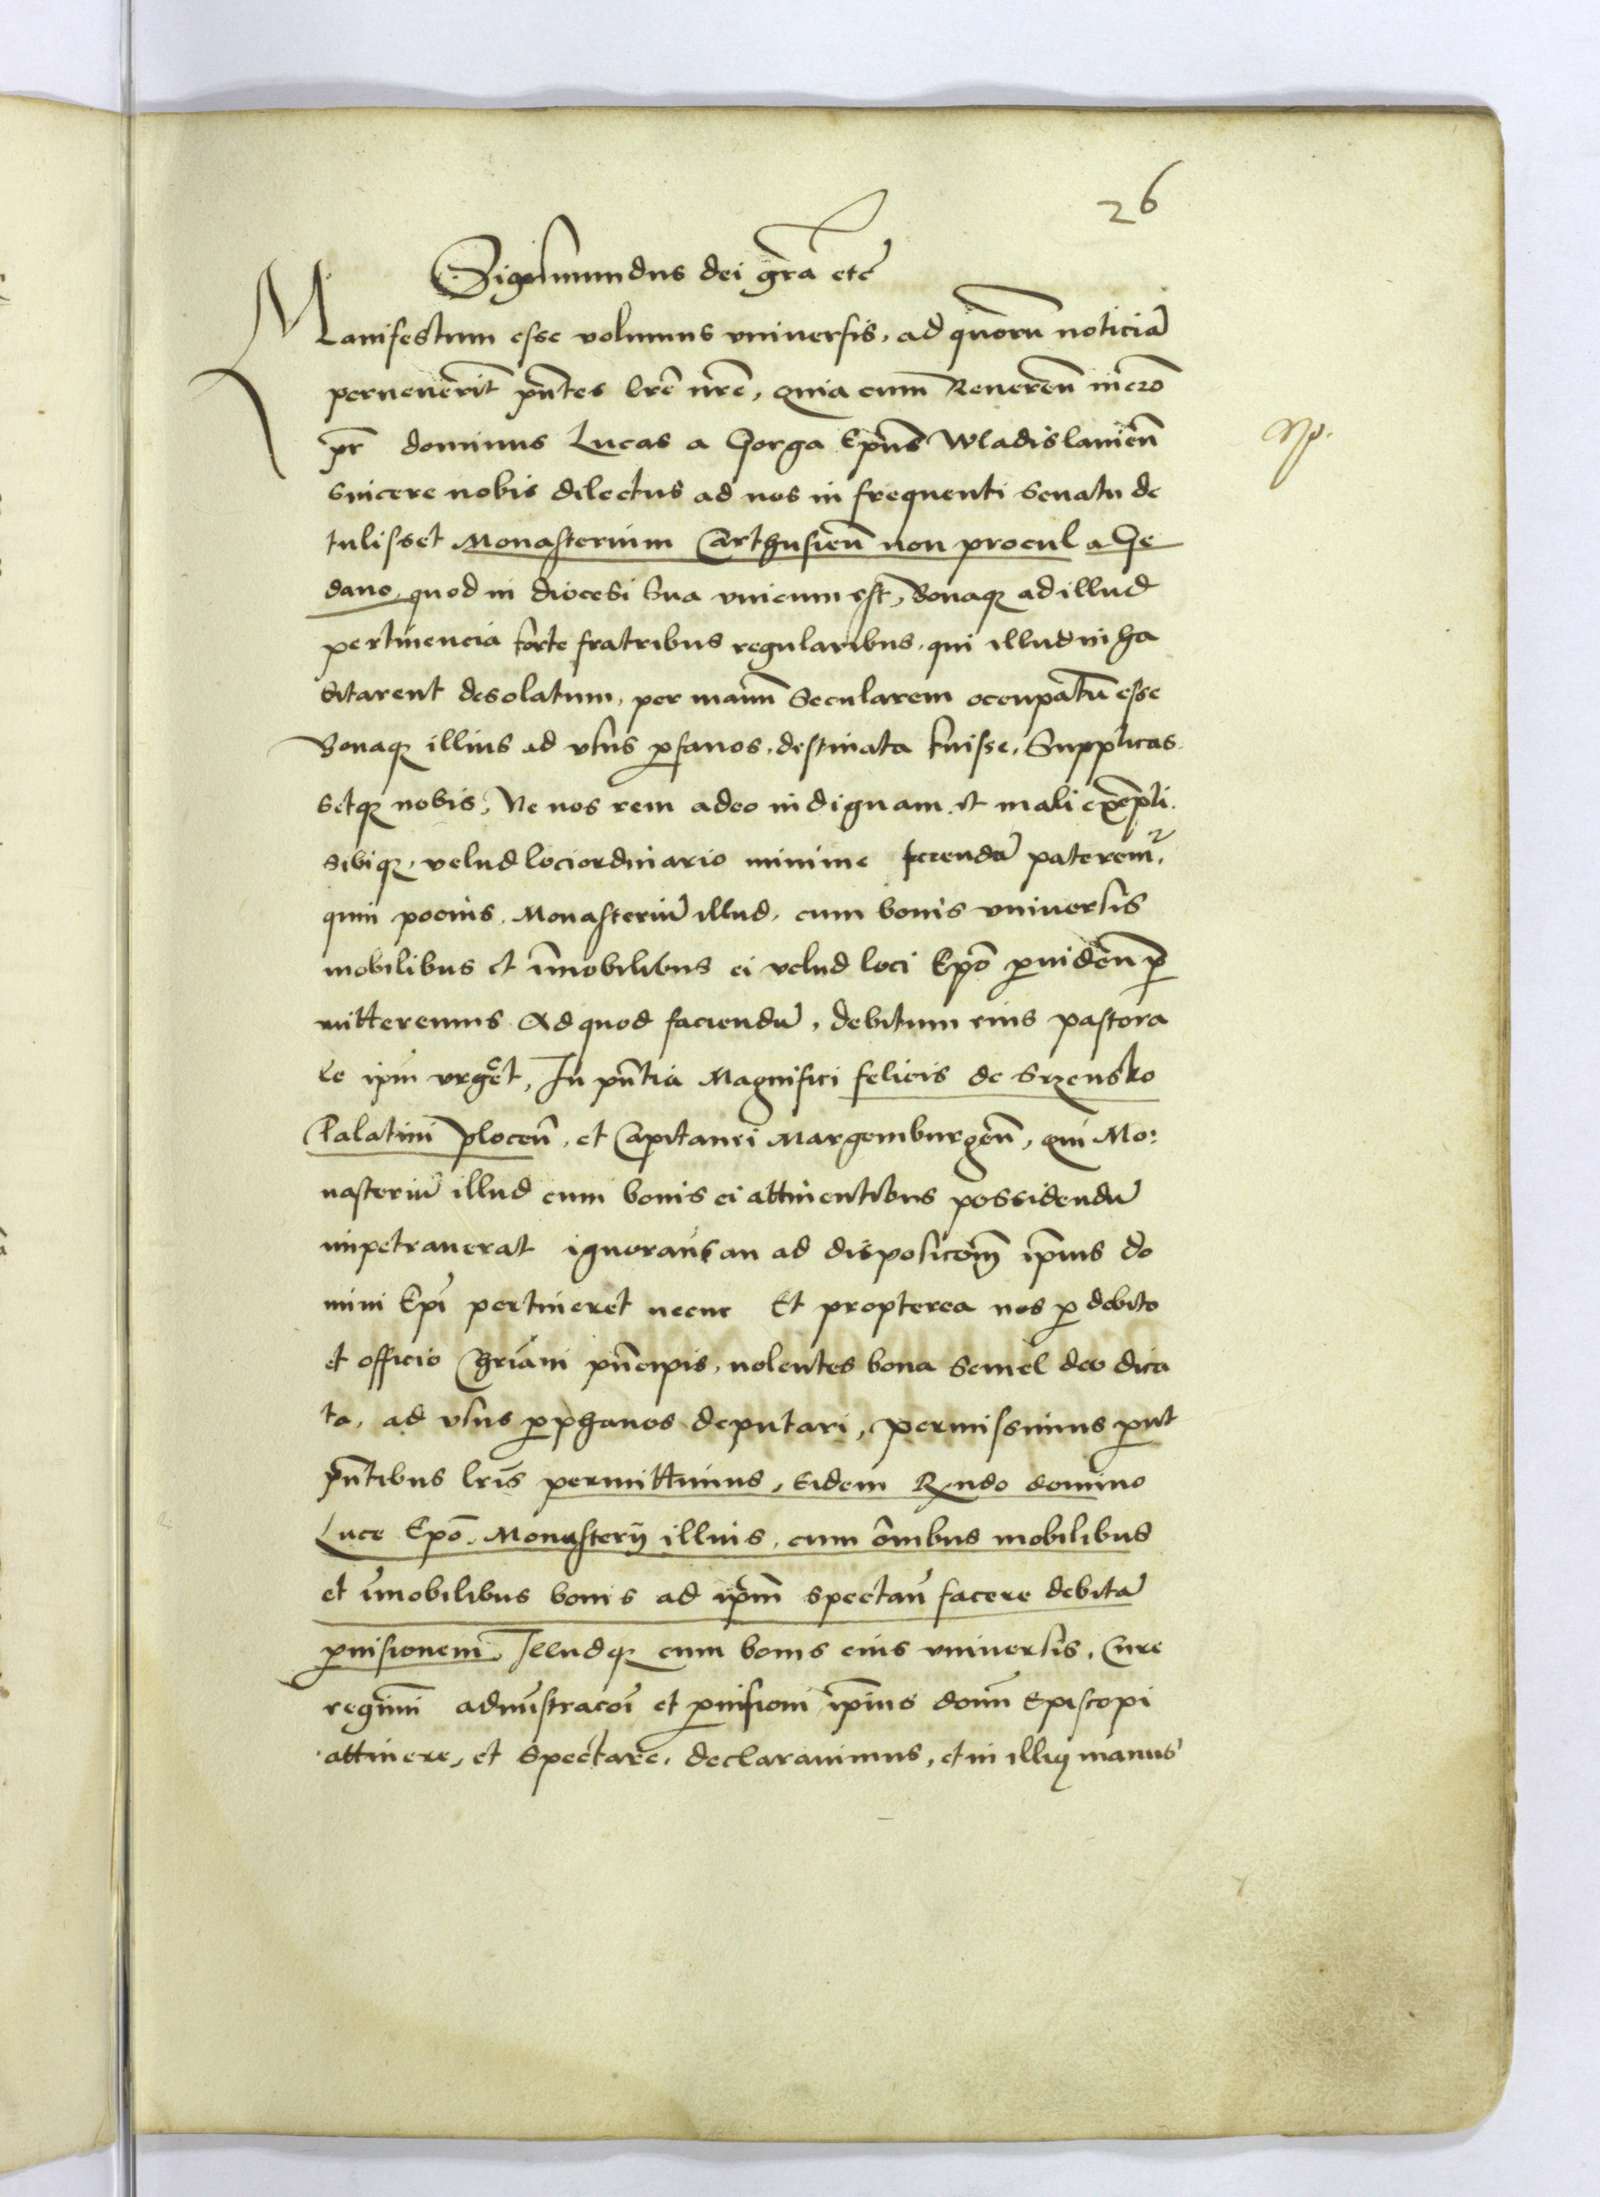 26
Sigismundus dei gr̄a etc̄
Manifestum esse volumus vniuersis, ad quorū noticiā
peruenerit pn̄tes lrē nrē, quia cum Reueren̄ in cr̄o
pr̄ dominus Lucas a Gorga Ep̄us Wladislauien̄
sincere nobis dilectus ad nos in frequenti senatu de
tulisset Monasterium Carthusien̄ non procul a Ge
dano, quod in diocesi sua vnicum est, Bonaq; ad illud
pertinencia forte fratribus regularibus, qui illud inha
bitarent desolatum, per manū Secularem occupatū esse
Bonaq; illius ad vsus ꝓfanos, destinata fuisse, Supplicas
setq; nobis, Ne nos rem adeo indignam et mali exēpli
sibiq; velud loci ordinario minime ferendā pateremʳ,
quin pocius Monasteriū illud, cum bonis vniuersis
mobilibus et īmobilibus ei velud loci Ep̄o ꝓuiden̄ ꝑ
mitteremus Ad quod faciendū, debitum eius pastora
le ip̄m vrgeret, In pn̄tia Magnifici felicis de Srzensko
Palatini plocen̄, et Capitanei Margemburgen̄, qui Mo:
nasteriū illud cum bonis ei attinentibus possidendū
impetrauerat ignorans an ad disposicōem ip̄ius do
mini Ep̄i pertineret necne Et propterea nos ꝓ debito
et officio Chr̄iani pn̄cipis, nolentes bona semel deo dica
ta, ad vsus ꝓphanos deputari, permissimus ꝓut
pn̄tibus lr̄is permittimus, Eidem Rn̄do domino
Luce Ep̄o, Monasterij illius, cum ōnibus mobilibus
et īmobilibus bonis ad ip̄m spectan̄ facere debitā
ꝓuisionem, Illudq; cum bonis eius vniuersis, Cure
regimī admīstracōi et ꝓuisioni ip̄ius domī Episcopi
attinere, et spectare, declarauimus, et in illiꝰ manus